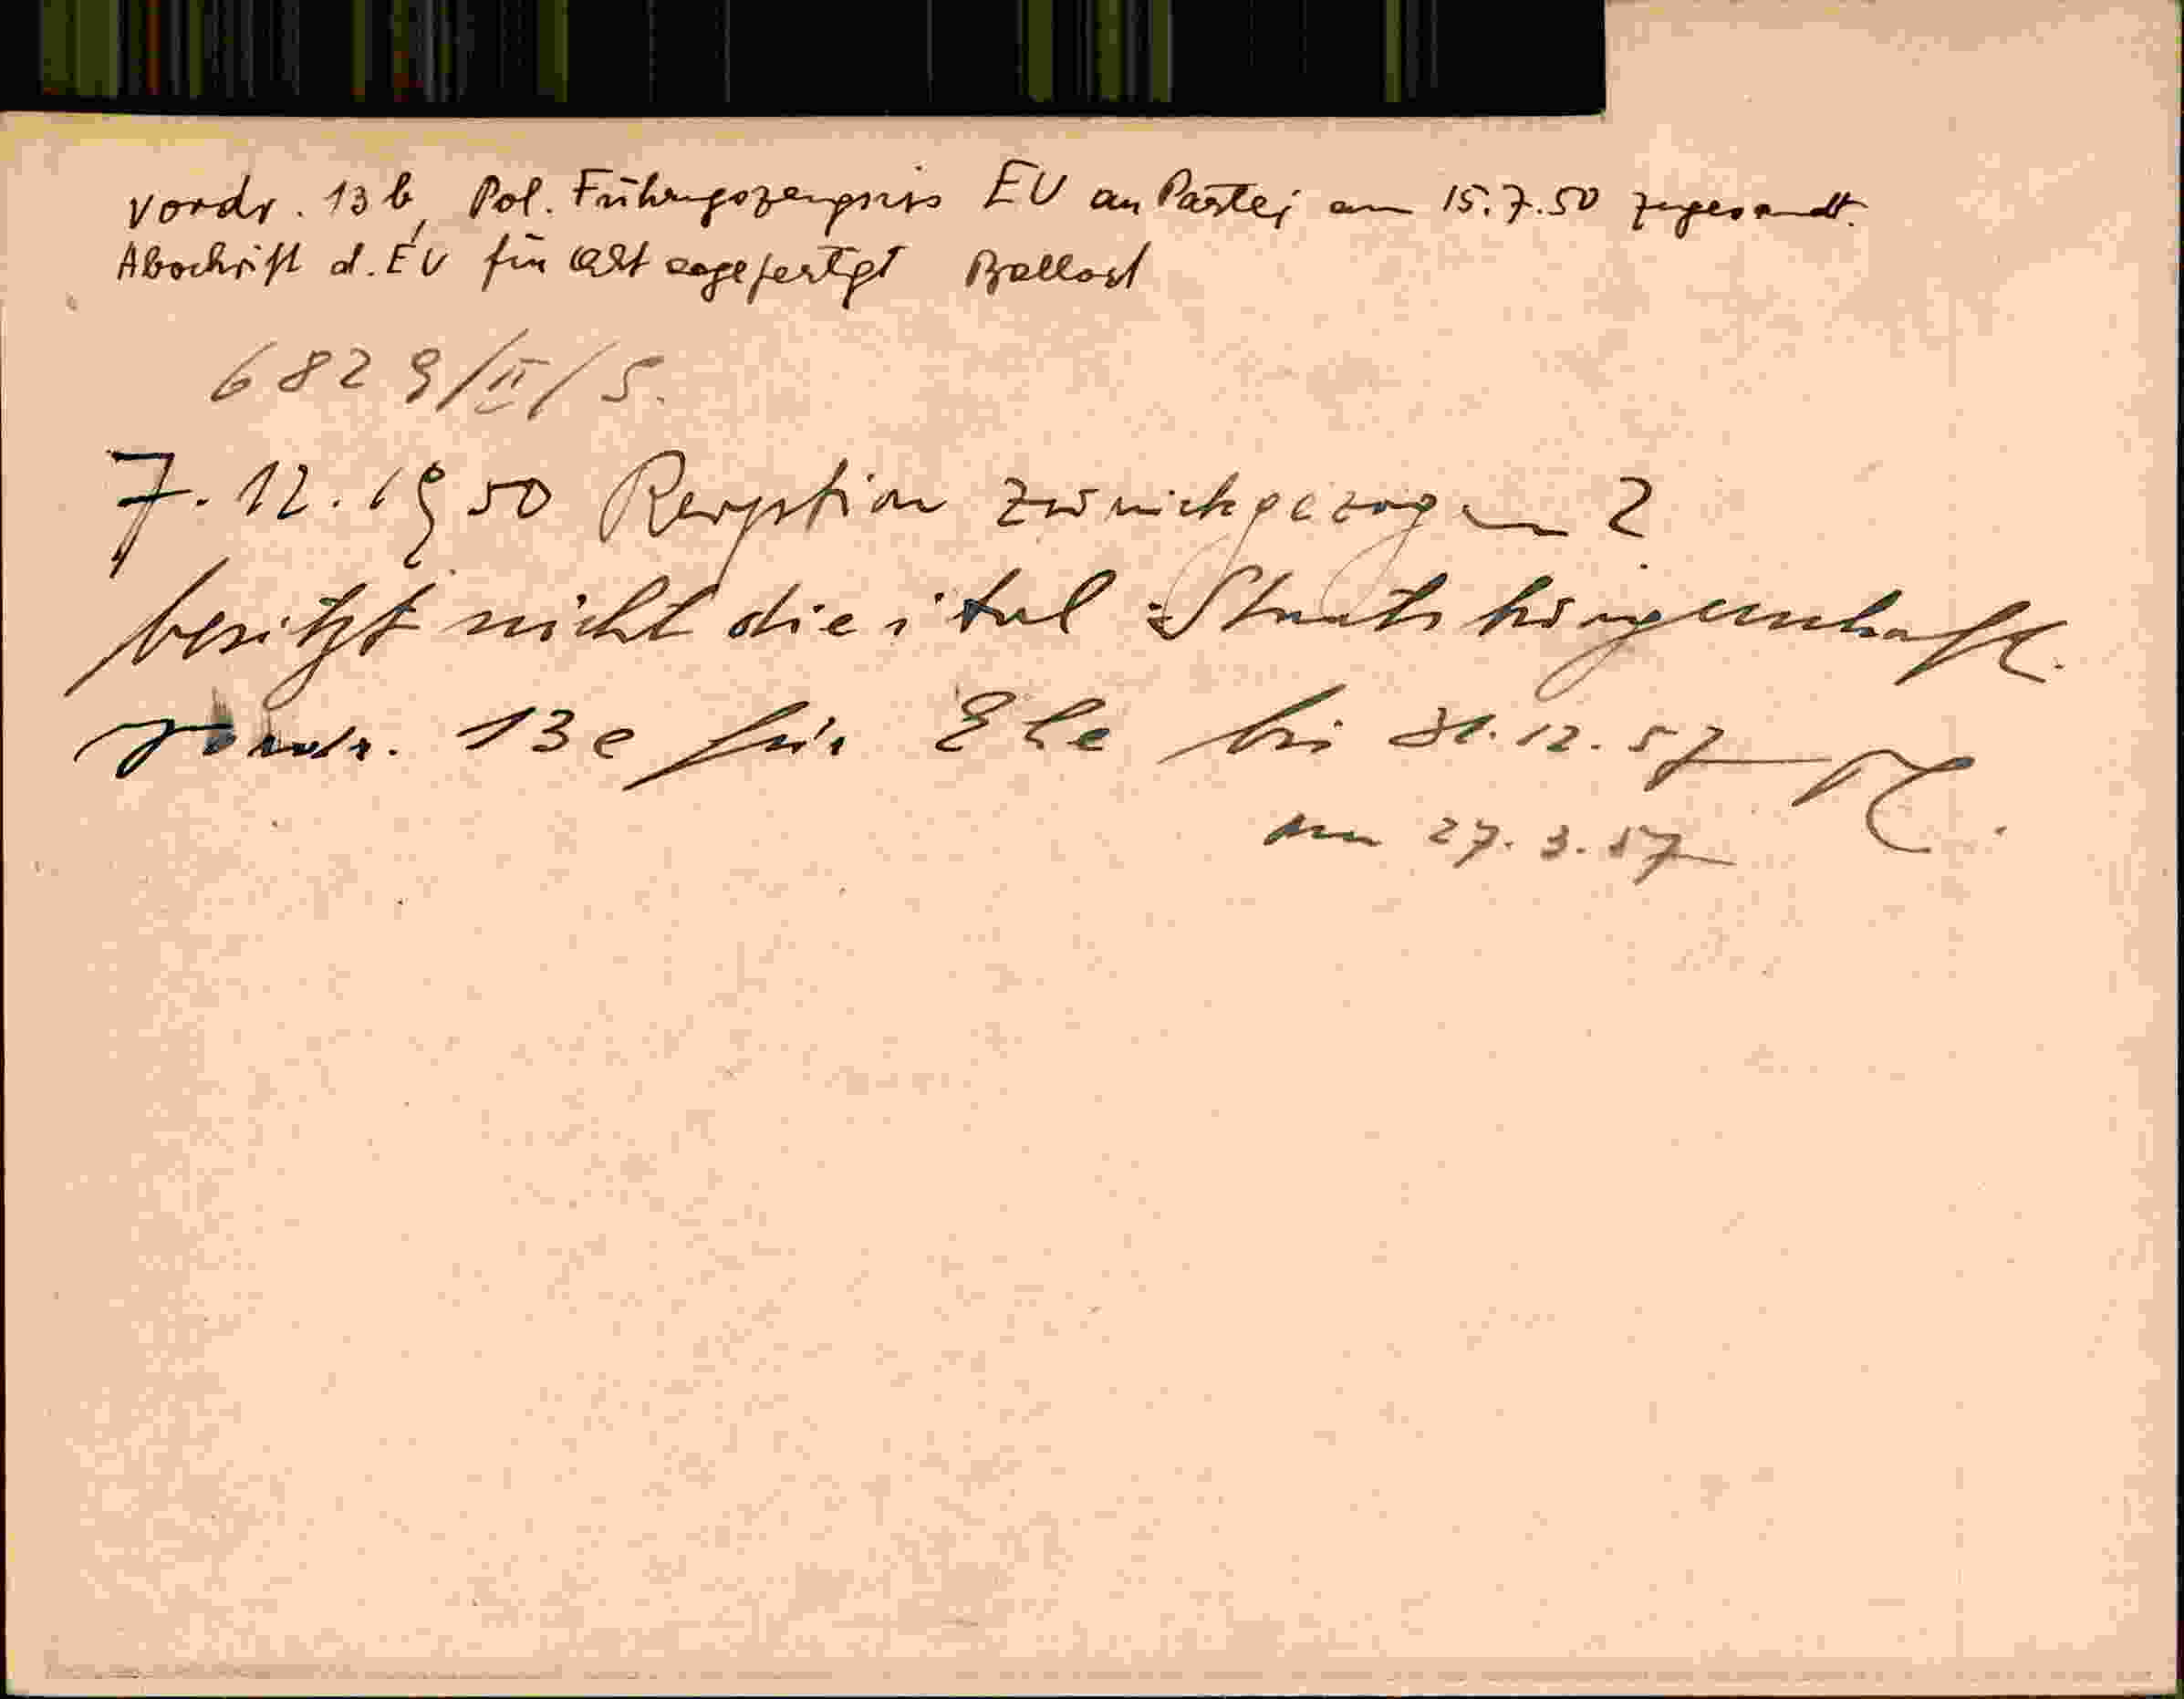 Vordr. 13b, Pol. Führungszeugniss EU an Partei am 15.7.50 zugesandt.
Abschrift d. EU für Akt angefertigt
6829/II/5.
7.12.1950 Rezeption zurückgezogen?
besitzt nicht die ital. Staatsbürgerschaft.
Vordr. 13e für Ehe bis 31.12.57
am 27.3.57